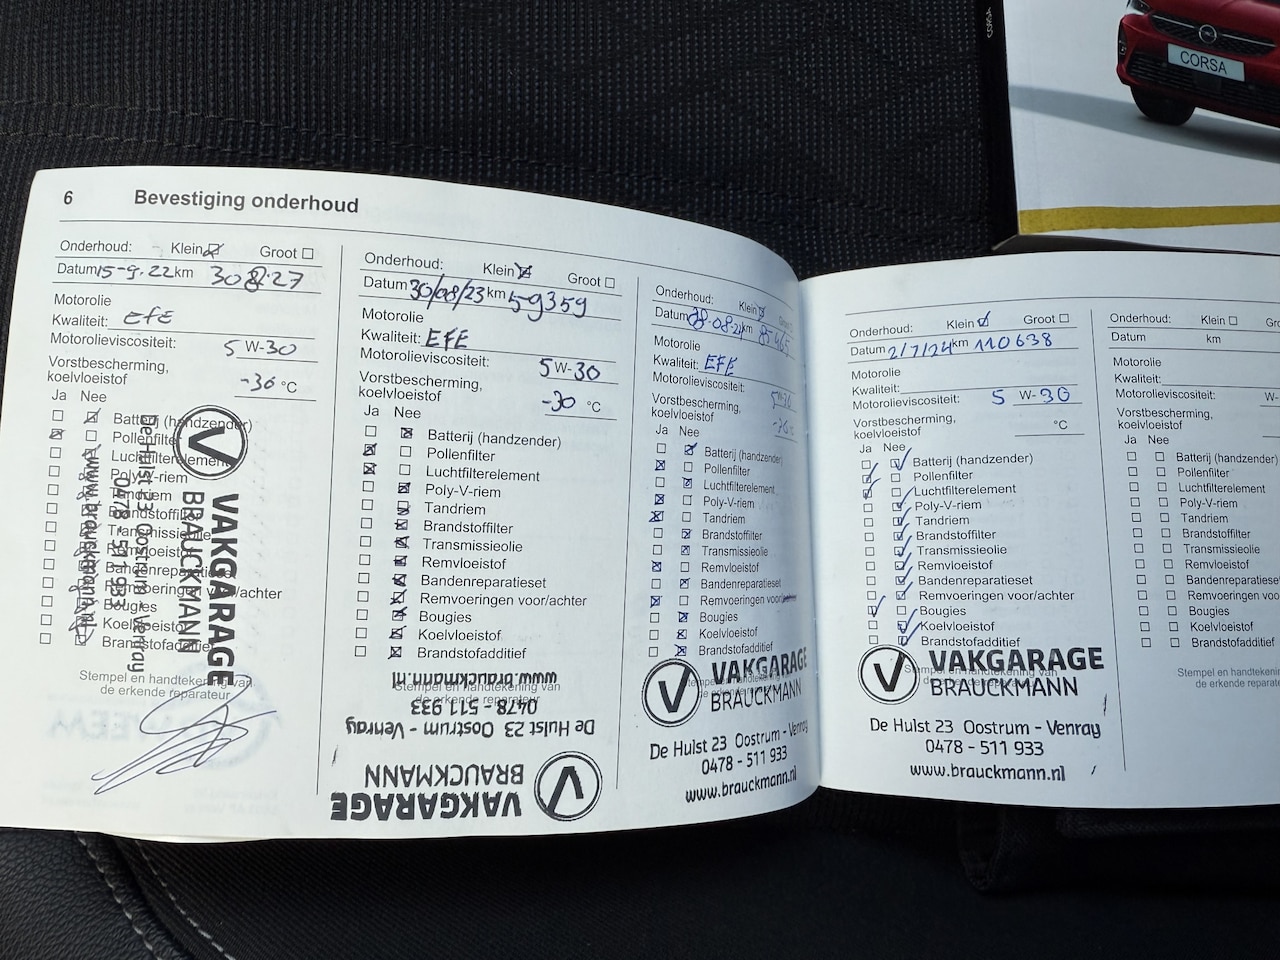 6 Bevestiging onderhoud
Onderhoud: Klein Groot
Datum 15-9-22 km
Motorolie
Kwaliteit: EFE
Motorolieviscositeit: 5 W-30
Vorstbescherming,
koelvloeistof -36 °C
Ja Nee
Batterij (handzender)
Pollenfilter
Luchtfilterelement
Poly-V-riem
Tandriem
Brandstoffilter
Transmissieolie
Remvloeistof
Bandenreparatieset
Remvoeringen voor/achter
Bougies
Koelvloeistof
Brandstofadditief
Stempel en handtekening van
de erkende reparateur
VAKGARAGE
BRAUCKMANN
De Hulst 23 Oostrum - Venray
0478 - 511 933
www.brauckmann.nl
Onderhoud: Klein Groot
Datum 30/08/23 km 59359
Motorolie
Kwaliteit: EFE
Motorolieviscositeit: 5 W-30
Vorstbescherming,
koelvloeistof -30 °C
Ja Nee
Batterij (handzender)
Pollenfilter
Luchtfilterelement
Poly-V-riem
Tandriem
Brandstoffilter
Transmissieolie
Remvloeistof
Bandenreparatieset
Remvoeringen voor/achter
Bougies
Koelvloeistof
Brandstofadditief
Stempel en handtekening van
de erkende reparateur
VAKGARAGE
BRAUCKMANN
De Hulst 23 Oostrum - Venray
0478 - 511 933
www.brauckmann.nl
Onderhoud: Klein Groot
Datum km
Motorolie
Kwaliteit: EFE
Motorolieviscositeit:
Vorstbescherming,
koelvloeistof
Ja Nee
Batterij (handzender)
Pollenfilter
Luchtfilterelement
Poly-V-riem
Tandriem
Brandstoffilter
Transmissieolie
Remvloeistof
Bandenreparatieset
Remvoeringen
Bougies
Koelvloeistof
Brandstofadditief
VAKGARAGE
BRAUCKMANN
De Hulst 23 Oostrum - Venray
0478 - 511 933
www.brauckmann.nl
Onderhoud: Klein Groot
Datum 2/7/24 km 110638
Motorolie
Kwaliteit:
Motorolieviscositeit: 5 W-30
Vorstbescherming,
koelvloeistof °C
Ja Nee
Batterij (handzender)
Pollenfilter
Luchtfilterelement
Poly-V-riem
Tandriem
Brandstoffilter
Transmissieolie
Remvloeistof
Bandenreparatieset
Remvoeringen voor/achter
Bougies
Koelvloeistof
Brandstofadditief
VAKGARAGE
BRAUCKMANN
De Hulst 23 Oostrum - Venray
0478 - 511 933
www.brauckmann.nl
Onderhoud: Klein Groot
Datum km
Motorolie
Kwaliteit:
Motorolieviscositeit: W-
Vorstbescherming,
koelvloeistof
Ja Nee
Batterij (handzender)
Pollenfilter
Luchtfilterelement
Poly-V-riem
Tandriem
Brandstoffilter
Transmissieolie
Remvloeistof
Bandenreparatieset
Remvoeringen
Bougies
Koelvloeistof
Brandstofadditief
Stempel en handtekening
de erkende reparateur
CORSA
CORSA